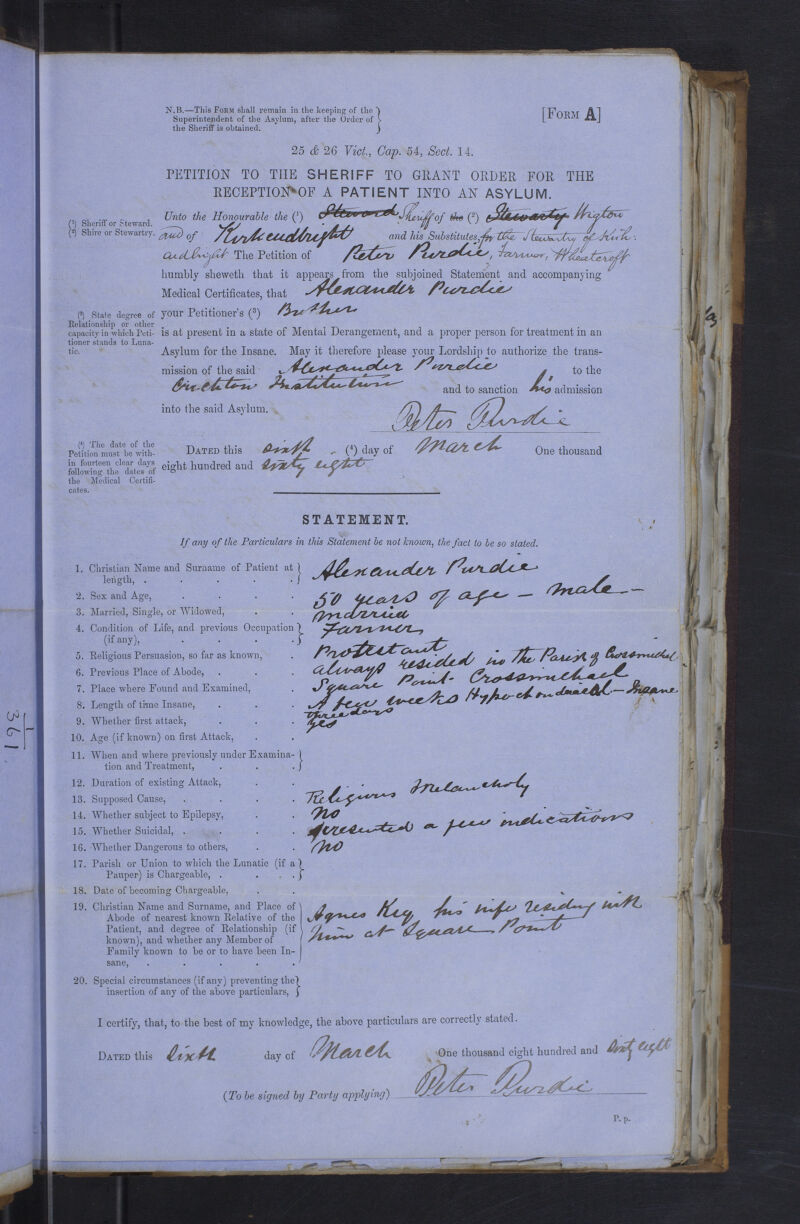 N.B.—This Form shall remain in the keeping of the
Superintendent of the Asylum, after the Order of
the Sheriff is obtained.
[Form A]
25 & 26 Vict., Cap. 54, Sect. 14.
PETITION TO THE SHERIFF TO GRANT ORDER FOR THE
RECEPTION OF A PATIENT INTO AN ASYLUM.
(¹) Sheriff or Steward.
(²) Shire or Stewartry.
Unto the Honourable the (¹) Steward Sheriff of the (²) Stewartry Wigton
and of Kirkcudbright and his Substitutes, for the Stewartry of Kirk-
cudbright The Petition of Peter Purdie, Farmer,
humbly sheweth that it appears from the subjoined Statement and accompanying
Medical Certificates, that Alexander Purdie
(³) State degree of
Relationship or other
capacity in which Peti-
tioner stands to Luna-
tic.
your Petitioner's (³) Brother
is at present in a state of Mental Derangement, and a proper person for treatment in an
Asylum for the Insane. May it therefore please your Lordship to authorize the trans-
mission of the said Alexander Purdie to the
Crichton Institution and to sanction his admission
into the said Asylum.
Peter Purdie
(⁴) The date of the
Petition must be with-
in fourteen clear days
following the dates of
the Medical Certifi-
cates.
Dated this sixth (⁴) day of March One thousand
eight hundred and sixty eight
STATEMENT.
If any of the Particulars in this Statement be not known, the fact to be so stated.
1. Christian Name and Surname of Patient at
length, . Alexander Purdie
2. Sex and Age, 50 years of age — male —
3. Married, Single, or Widowed, married
4. Condition of Life, and previous Occupation
(if any), Farmer
5. Religious Persuasion, so far as known, Protestant
6. Previous Place of Abode, always resided in the Parish of Crossmichael
7. Place where Found and Examined, Square Point Crossmichael
8. Length of time Insane, A few weeks Hypochondriacal — Insane
three days
9. Whether first attack, yes
10. Age (if known) on first Attack,
11. When and where previously under Examina-
tion and Treatment,
12. Duration of existing Attack,
13. Supposed Cause, Religious Melancholy
14. Whether subject to Epilepsy, No
15. Whether Suicidal, presented a few indications
16. Whether Dangerous to others, No
17. Parish or Union to which the Lunatic (if a
Pauper) is Chargeable,
18. Date of becoming Chargeable,
19. Christian Name and Surname, and Place of
Abode of nearest known Relative of the
Patient, and degree of Relationship (if
known), and whether any Member of
Family known to be or to have been In-
sane,
Agnes Key his wife residing with
him at Square Point
20. Special circumstances (if any) preventing the
insertion of any of the above particulars,
I certify, that, to the best of my knowledge, the above particulars are correctly stated.
Dated this Sixth day of March One thousand eight hundred and Sixty eight
(To be signed by Party applying) Peter Purdie
P. p.
1
361